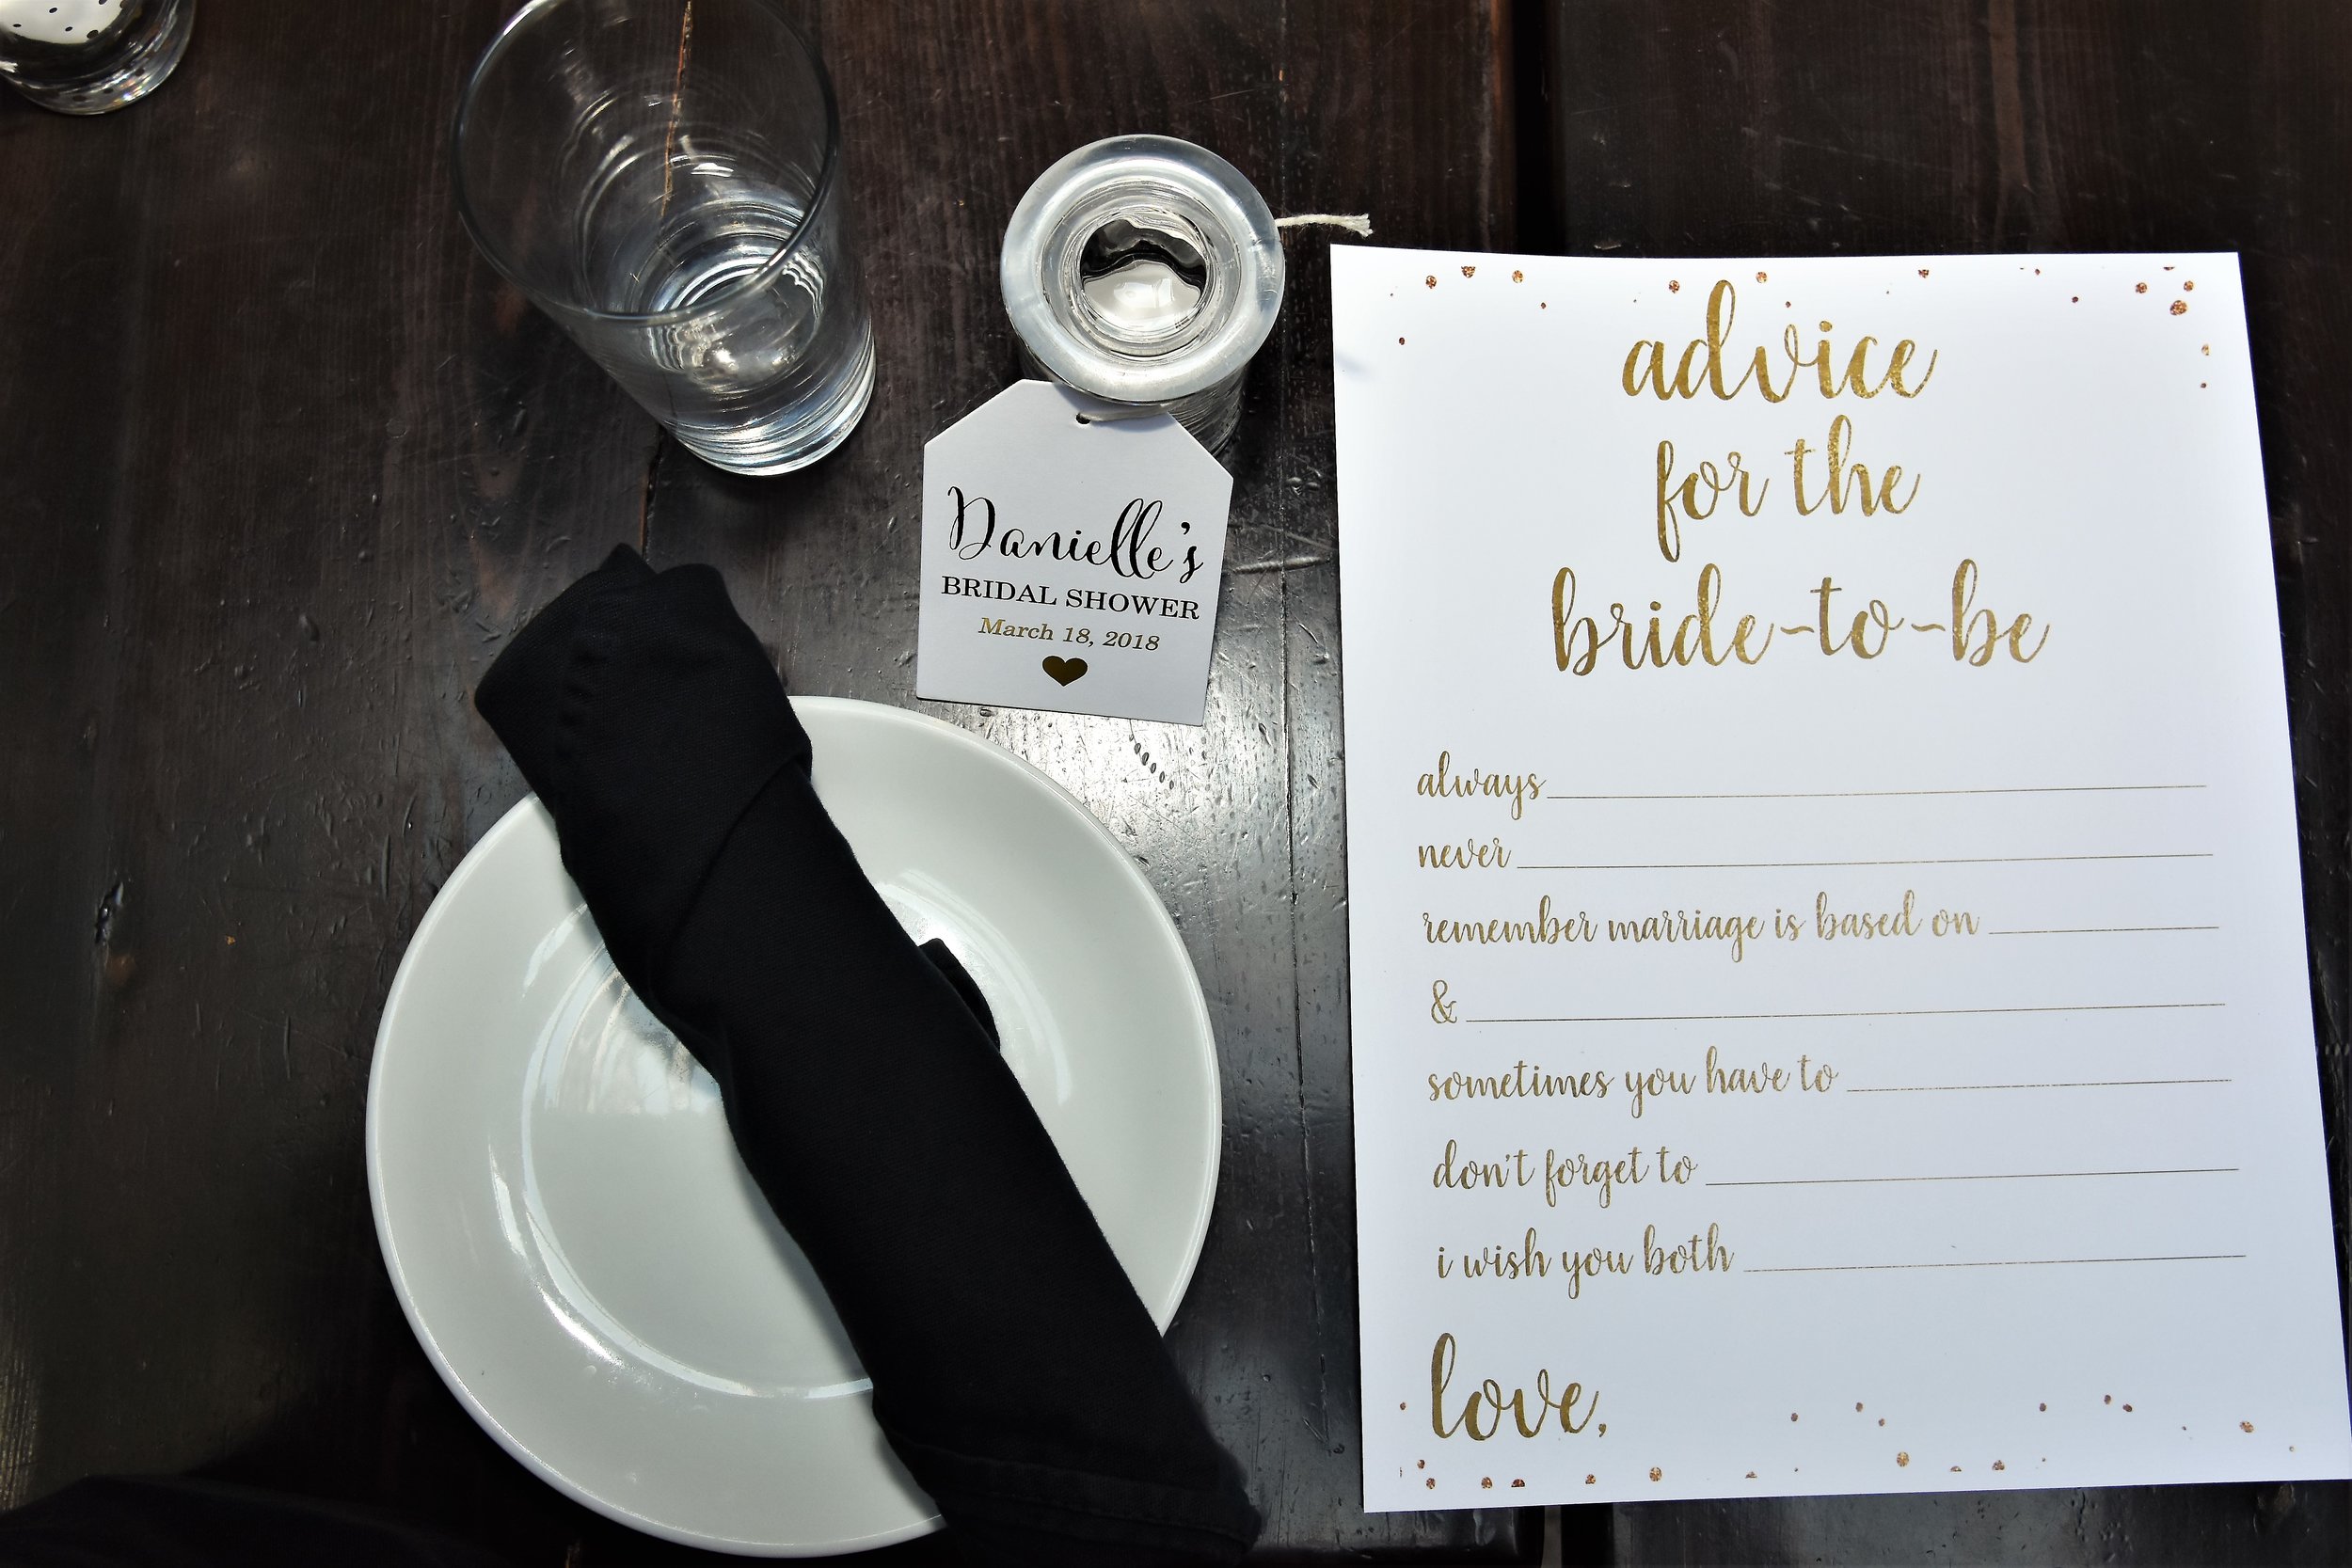 Danielle's
BRIDAL SHOWER
March 18, 2018
advice
for the
bride-to-be
always
never
remember marriage is based on
&
sometimes you have to
don't forget to
i wish you both
love,